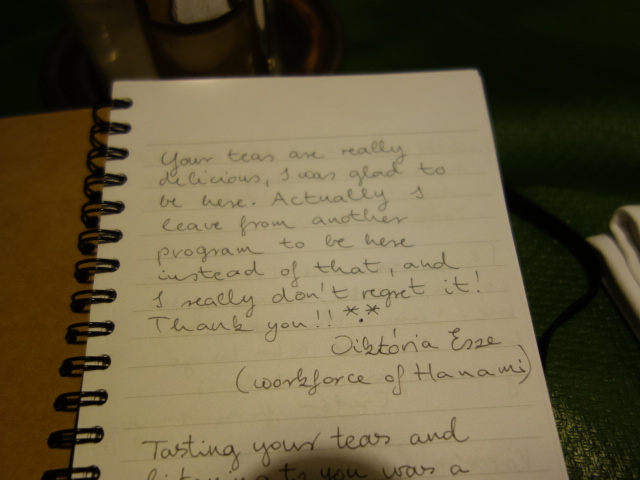 Your teas are really
delicious, I was glad to
be here. Actually I
leave from another
program to be here
instead of that, and
I really don't regret it!
Thank you!! *.*
Viktória Esze
(workforce of Hanami)
Tasting your teas and
listening to you was a